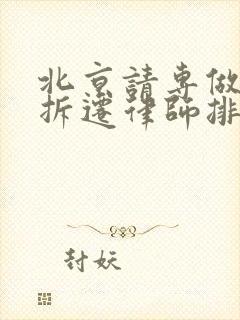 北京請專做
拆遷律師排
封妖